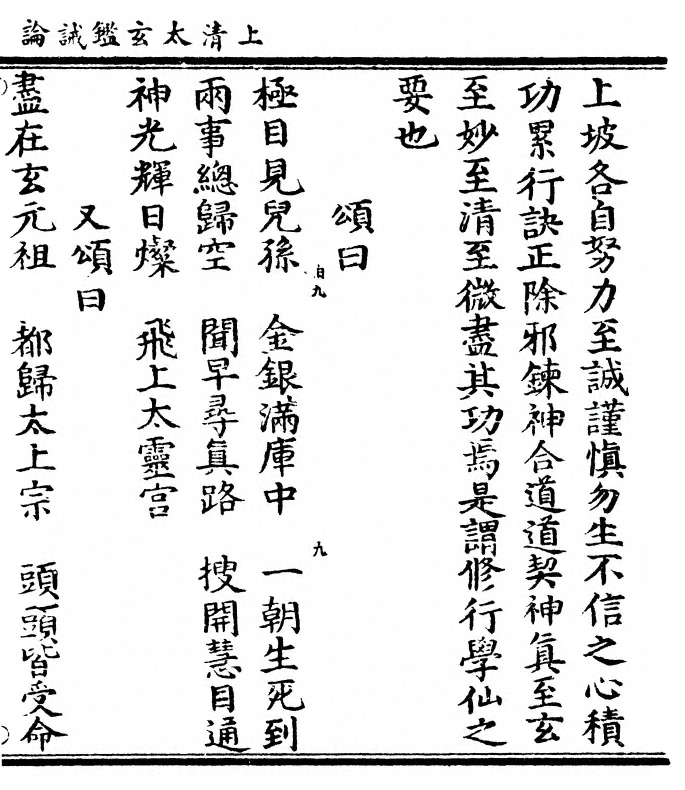 上清太玄鑑誡論
上坡各自努力至誠謹慎勿生不信之心積
功累行訣正除邪鍊神合道道契神真至玄
至妙至清至微盡其功焉是謂修行學仙之
要也
頌曰
極目見兒孫 金銀滿庫中 一朝生死到
兩事總歸空 聞早尋真路 搜開慧目通
神光輝日燦 飛上太靈宮
又頌曰
盡在玄元祖 都歸太上宗 頭頭皆受命